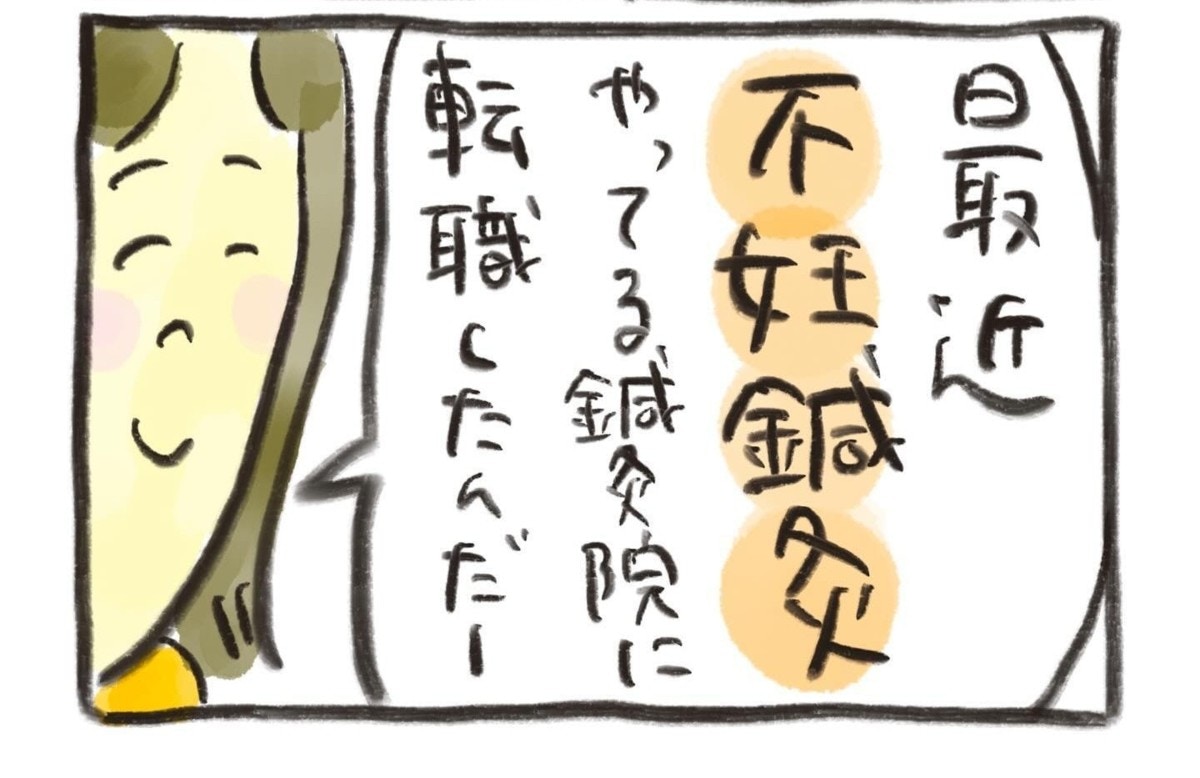 最近
不妊鍼灸
やってる鍼灸院に
転職したんだー